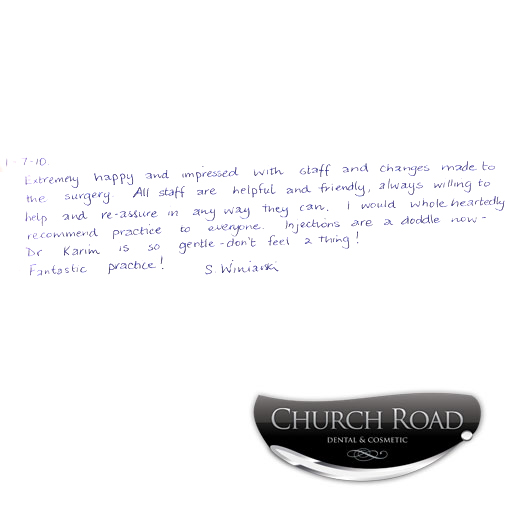 1-7-10.
Extremely happy and impressed with staff and changes made to
the surgery. All staff are helpful and friendly, always willing to
help and re-assure in any way they can. I would whole heartedly
recommend practice to everyone. Injections are a doddle now -
Dr Karim is so gentle - don't feel a thing!
Fantastic practice! S. Winiarski
CHURCH ROAD
DENTAL & COSMETIC